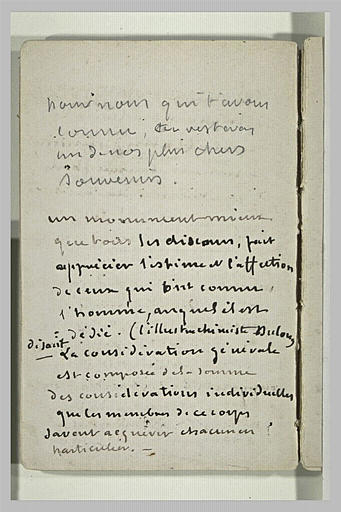 pour nous qui t'avons
connu, tu resteras
un de nos plus chers
souvenirs.
un monument mieux
que tous les discours, fait
apprécier l'estime et l'affection
de ceux qui ont connu
l'homme, auquel il est
dédié. (l'illustre chimiste Dulong
disait
La considération générale
est composée de la somme
des considérations individuelles
que les membres de ce corps
savent acquérir chacun en
particulier. —